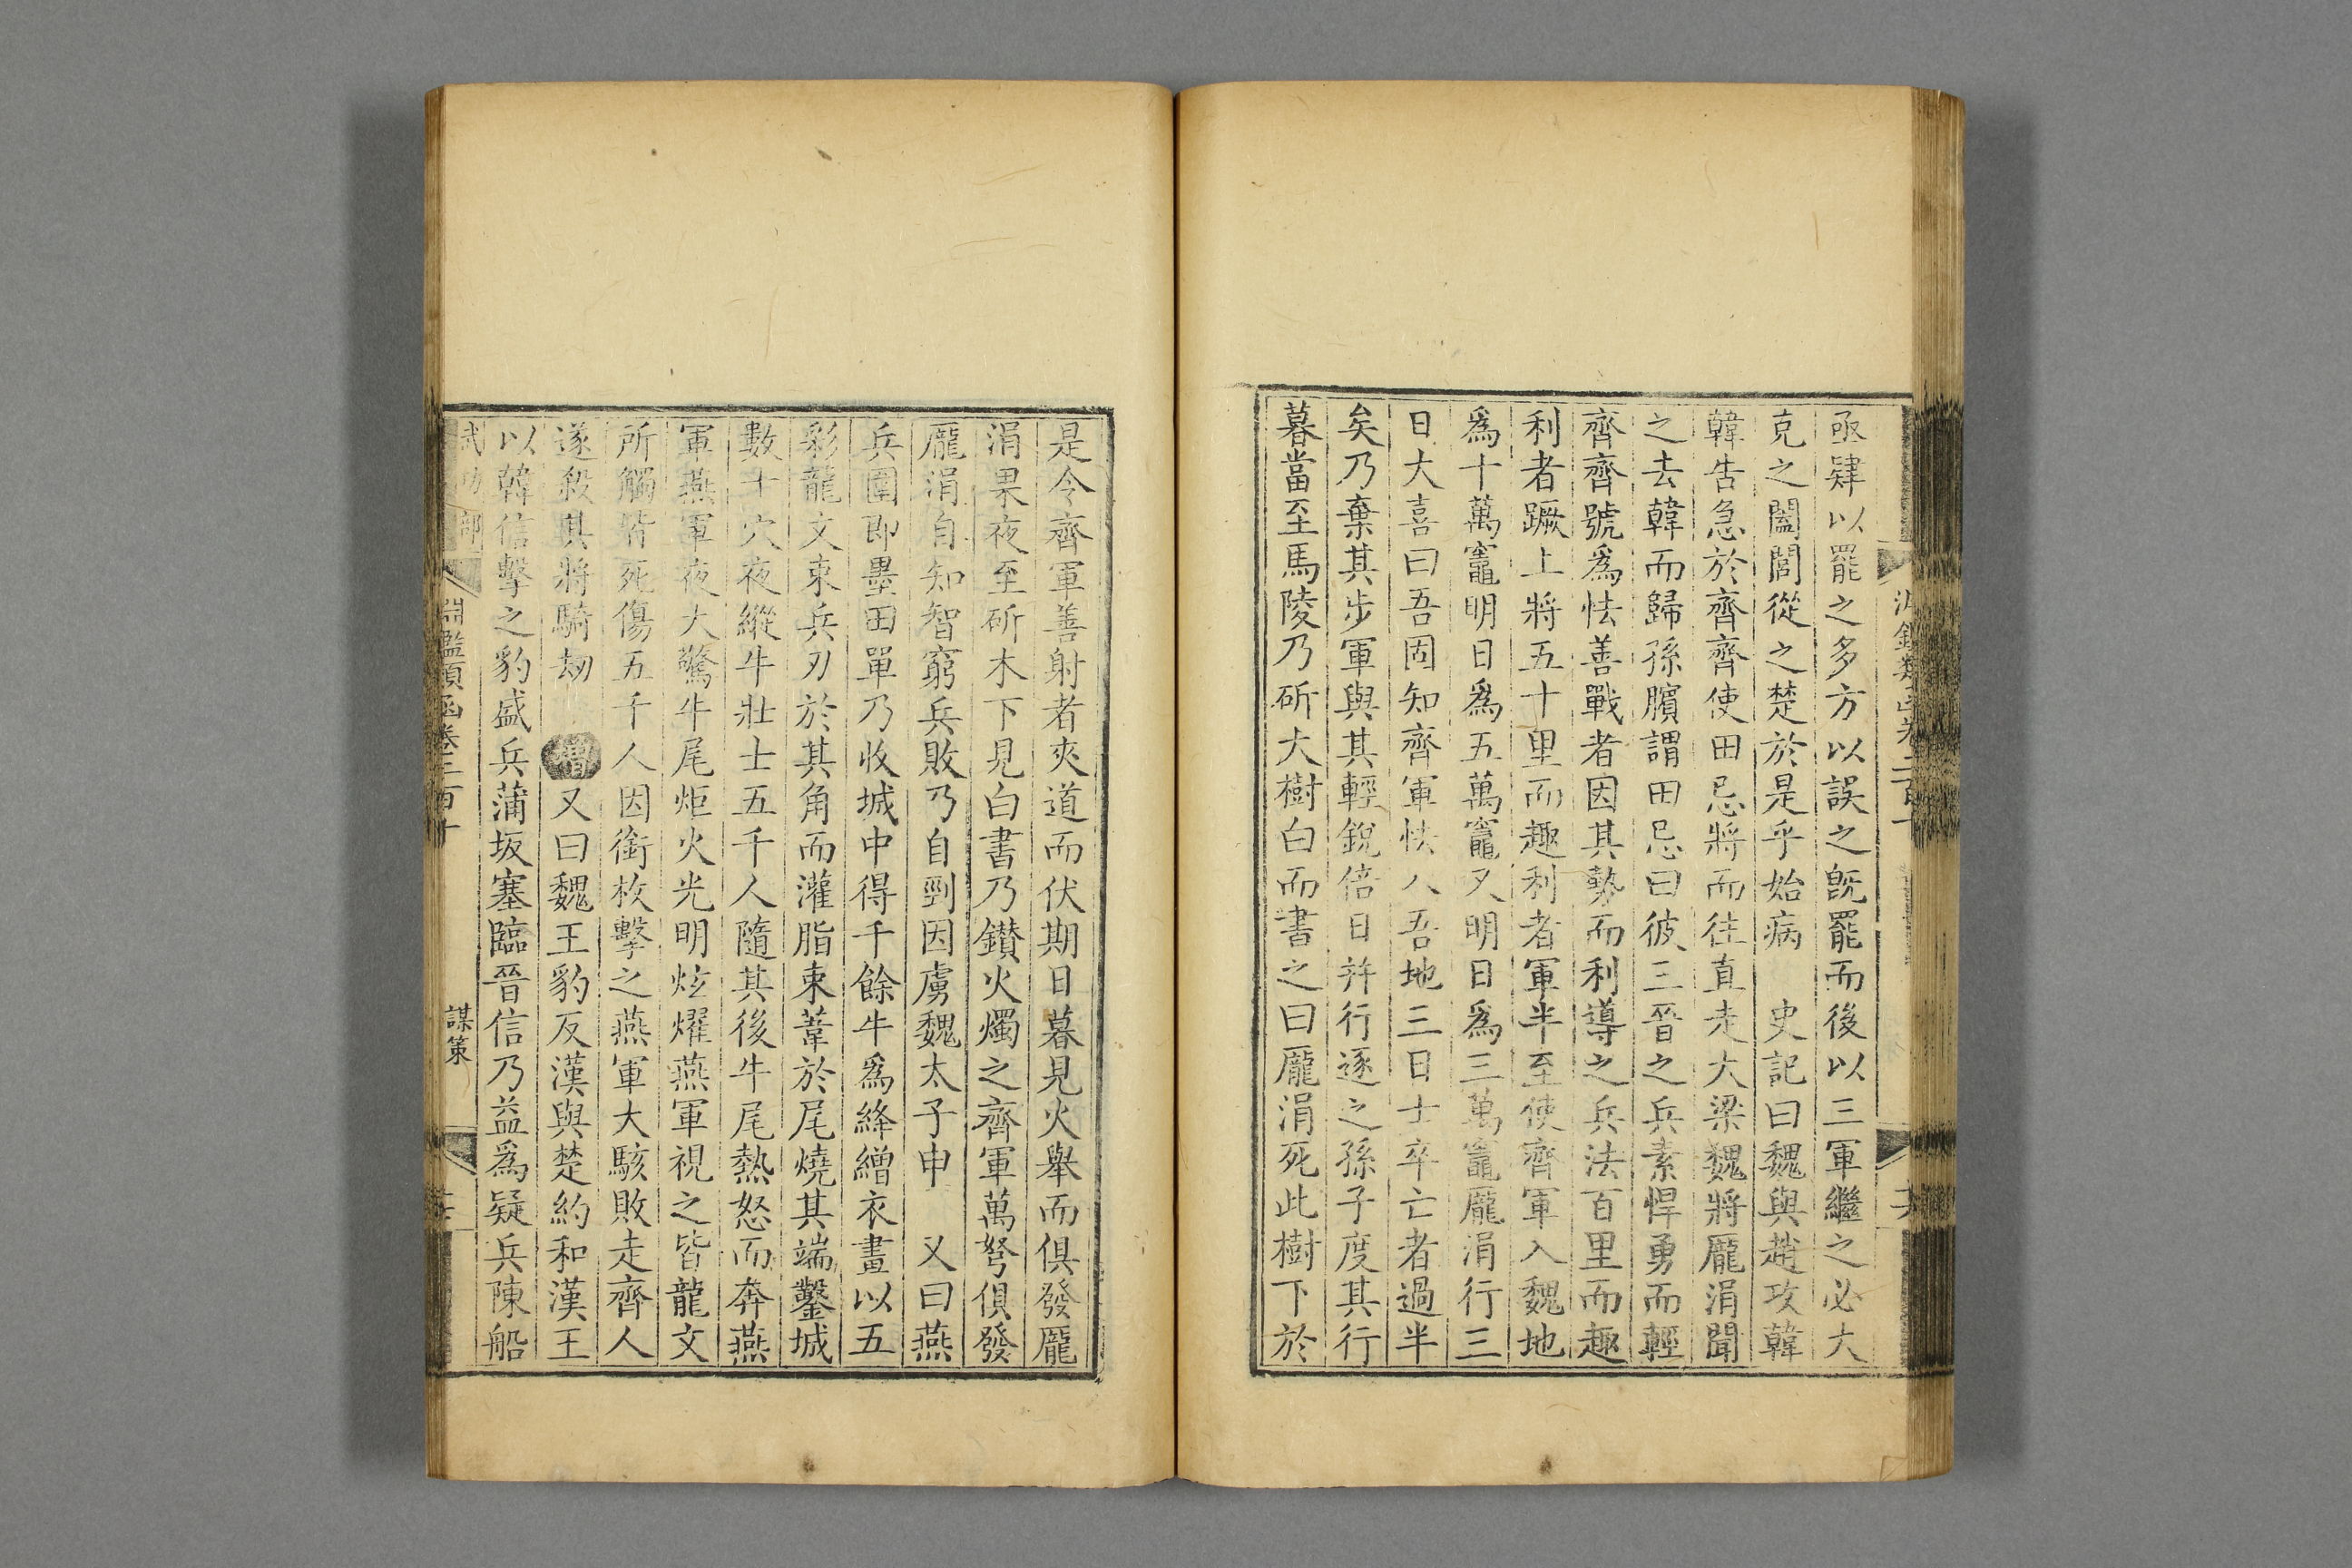 亟肄以罷之多方以誤之旣罷而後以三軍繼之必大
克之闔閭從之楚於是乎始病　史記曰魏與趙攻韓
韓告急於齊齊使田忌將而往直走大梁魏將龐涓聞
之去韓而歸孫臏謂田忌曰彼三晉之兵素悍勇而輕
齊齊號爲怯善戰者因其勢而利導之兵法百里而趣
利者蹶上將五十里而趣利者軍半至使齊軍入魏地
爲十萬竈明日爲五萬竈又明日爲三萬竈龐涓行三
日大喜曰吾固知齊軍怯入吾地三日士卒亡者過半
矣乃棄其步軍與其輕銳倍日并行逐之孫子度其行
暮當至馬陵乃斫大樹白而書之曰龐涓死此樹下於
是令齊軍善射者夾道而伏期日暮見火舉而俱發龐
涓果夜至斫木下見白書乃鑚火燭之齊軍萬弩俱發
龐涓自知智窮兵敗乃自剄因虜魏太子申　又曰燕
兵圍即墨田單乃收城中得千餘牛爲絳繒衣畫以五
彩龍文束兵刃於其角而灌脂束葦於尾燒其端鑿城
數十穴夜縱牛壯士五千人隨其後牛尾熱怒而奔燕
軍燕軍夜大驚牛尾炬火光明炫燿燕軍視之皆龍文
所觸皆死傷五千人因銜枚擊之燕軍大駭敗走齊人
遂殺其將騎劫　增又曰魏王豹反漢與楚約和漢王
以韓信擊之豹盛兵蒲坂塞臨晉信乃益爲疑兵陳船
武功部　淵鑑類函卷二百十　謀策